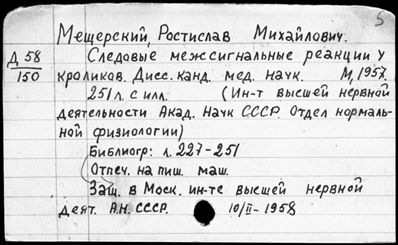 5
Мещерский, Ростислав Михайлович.
Д 58
150
Следовые межсигнальные реакции у
кроликов. Дисс. канд. мед. наук. М, 1957.
251 л. с илл. (Ин-т высшей нервной
деятельности Акад. Наук СССР. Отдел нормаль-
ной физиологии)
Библиогр: л. 227-251
Отпеч. на пиш. маш.
Защ. в Моск. ин-те высшей нервной
деят. А.Н. СССР. 10/II-1958